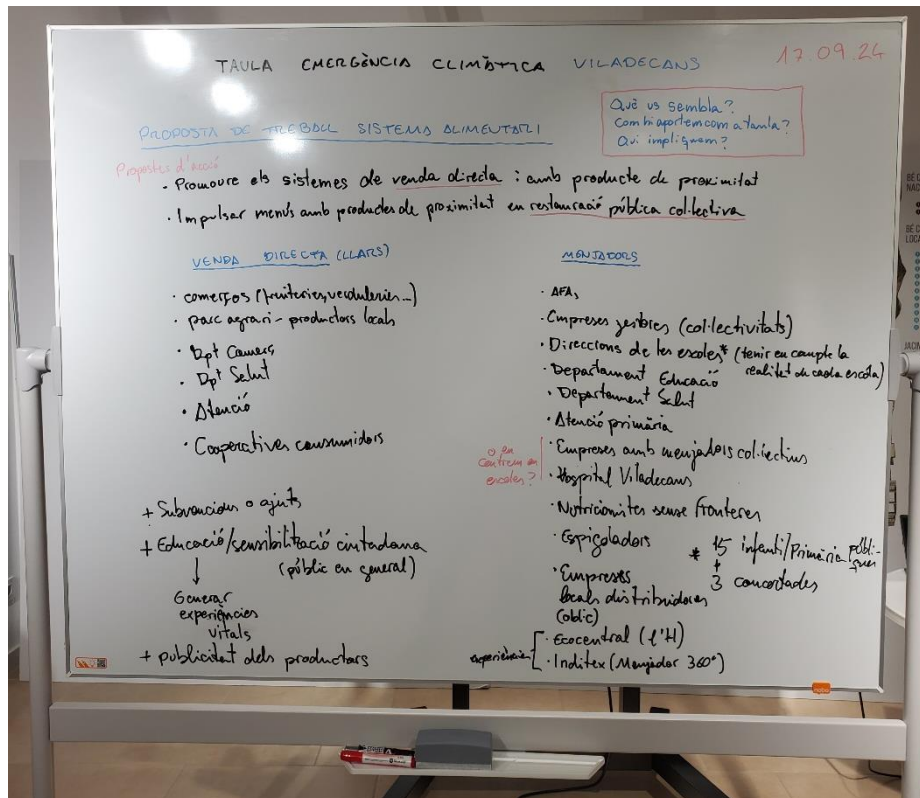 TAULA EMERGÈNCIA CLIMÀTICA VILADECANS
17.09.24
Què us sembla?
Com hi aportem com a taula?
Qui impliquem?
PROPOSTA DE TREBALL SISTEMA ALIMENTARI
Propostes d'acció
· Promoure els sistemes de venda directa : amb producte de proximitat
· Impulsar menús amb productes de proximitat en restauració pública col·lectiva
VENDA DIRECTA (LLARS)
· comerços (fruiteries, verduleries...)
· parc agrari - productors locals
· Dpt Comerç
· Dpt Salut
· Atenció
· Cooperatives consumidors
+ Subvencions o ajuts
+ Educació/sensibilització ciutadana
(públic en general)
↓
Generar
experiències
vitals
+ publicitat dels productors
MENJADORS
· AFAs
· Empreses gestores (col·lectivitats)
· Direccions de les escoles* (tenir en compte la
realitat de cada escola)
· Departament Educació
· Departament Salut
· Atenció primària
· Empreses amb menjadors col·lectius
· Hospital Viladecans
o en
centrem en
escoles?
· Nutricionistes sense fronteres
· Espigoladors
* 15 infantil/Primària públi-
ques
+
3 concertades
· Empreses
locals distribuidores
(oblic)
experiències
· Ecocentral (l'H)
· Inditex (Menjador 360°)